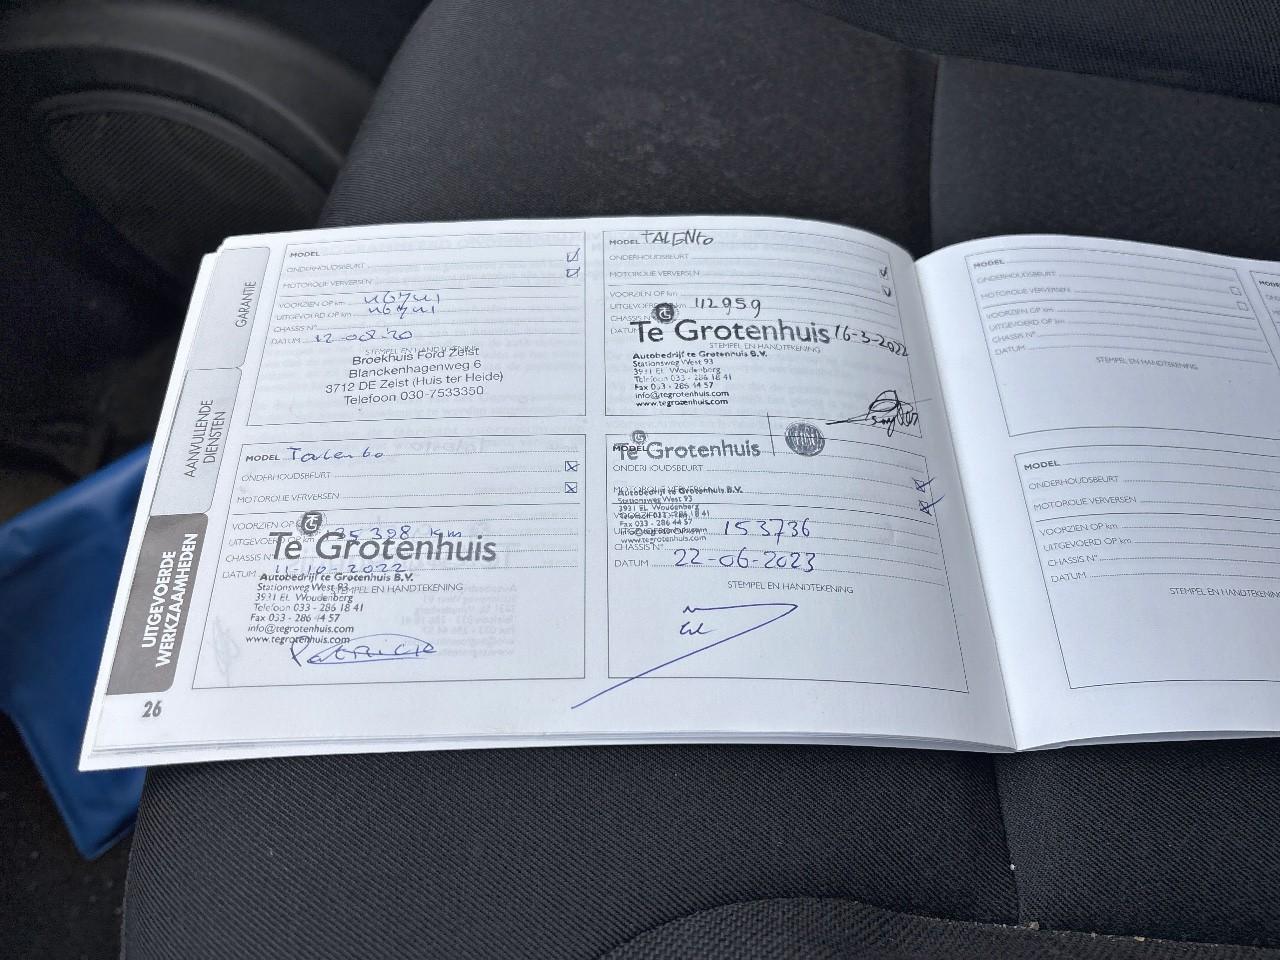 GARANTIE
AANVULLENDE
DIENSTEN
UITGEVOERDE
WERKZAAMHEDEN
26
MODEL
ONDERHOUDSBEURT
MOTOROLIE VERVERSEN
VOORZIEN OP km
UITGEVOERD OP km
CHASSIS N°
DATUM 12-08-20
STEMPEL EN HANDTEKENING
Broekhuis Ford Zeist
Blanckenhagenweg 6
3712 DE Zeist (Huis ter Heide)
Telefoon 030-7533350
MODEL TALENTO
ONDERHOUDSBEURT
MOTOROLIE VERVERSEN
VOORZIEN OP km
UITGEVOERD OP km 112959
CHASSIS N°
DATUM 16-3-2022
Te Grotenhuis
STEMPEL EN HANDTEKENING
Autobedrijf te Grotenhuis B.V.
Stationsweg West 93
3931 EL Woudenberg
Telefoon 033 - 286 18 41
Fax 033 - 286 44 57
info@tegrotenhuis.com
www.tegrotenhuis.com
MODEL Talento
ONDERHOUDSBEURT
MOTOROLIE VERVERSEN
VOORZIEN OP
UITGEVOERD OP 35 398 km
Te Grotenhuis
CHASSIS N°
DATUM 11-10-2022
Autobedrijf te Grotenhuis B.V.
STEMPEL EN HANDTEKENING
Stationsweg West 93
3931 EL Woudenberg
Telefoon 033 - 286 18 41
Fax 033 - 286 44 57
info@tegrotenhuis.com
www.tegrotenhuis.com
MODEL
Te Grotenhuis
ONDERHOUDSBEURT
MOTOROLIE VERVERSEN
Autobedrijf te Grotenhuis B.V.
Stationsweg West 93
3931 EL Woudenberg
Telefoon 033 - 286 18 41
Fax 033 - 286 44 57
153736
CHASSIS N°
DATUM 22-06-2023
STEMPEL EN HANDTEKENING
MODEL
ONDERHOUDSBEURT
MOTOROLIE VERVERSEN
VOORZIEN OP km
UITGEVOERD OP km
CHASSIS N°
DATUM
STEMPEL EN HANDTEKENING
MODEL
ONDERHOUDSBEURT
MOTOROLIE VERVERSEN
VOORZIEN OP km
UITGEVOERD OP km
CHASSIS N°
DATUM
STEMPEL EN HANDTEKENING